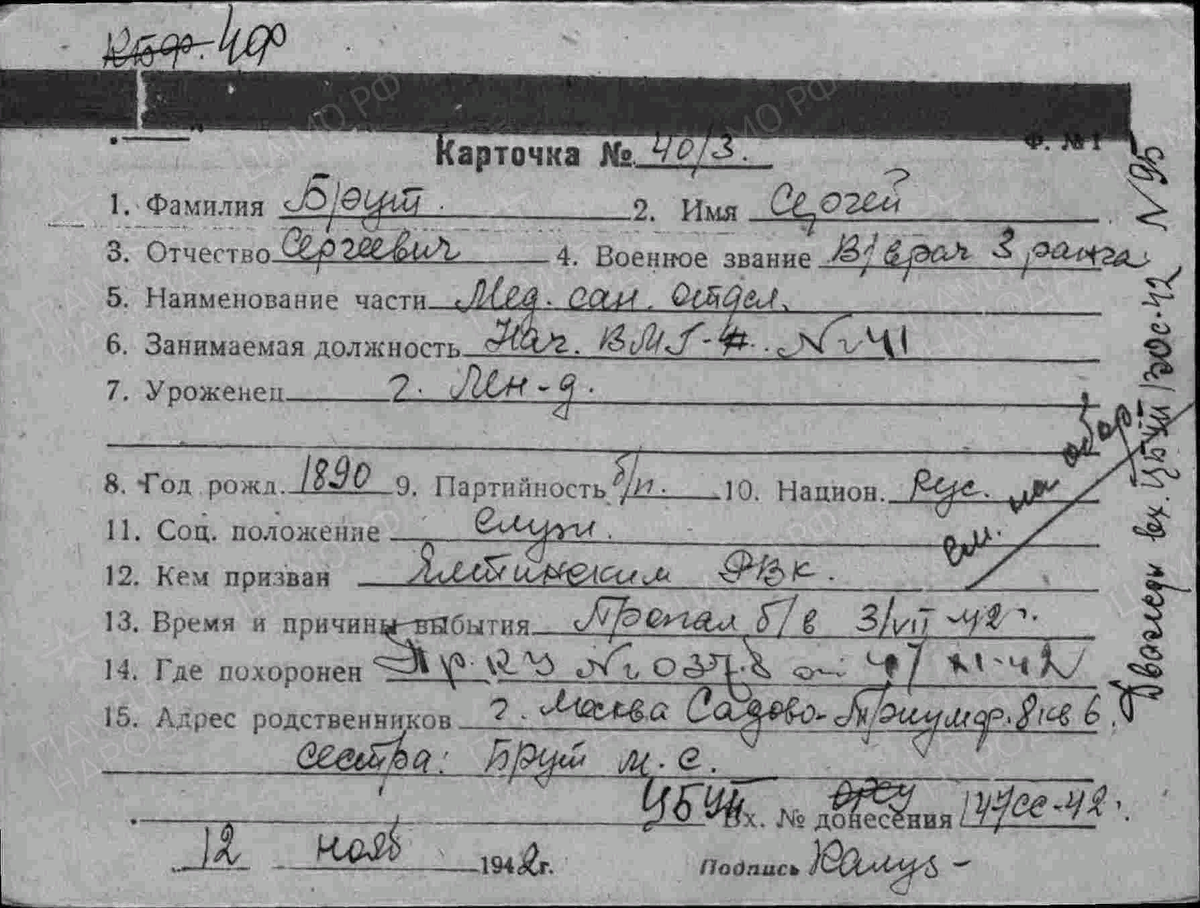 КБФ. ЧФ
Ф. №1
Карточка № 40/3.
1. Фамилия Брут. 2. Имя Сергей
3. Отчество Сергеевич 4. Военное звание В/врач 3 ранга
5. Наименование части Мед. сан. отдел.
6. Занимаемая должность Нач. ВМГ- № 41
7. Уроженец г. Лен-д.
8. Год рожд. 1890 9. Партийность б/п. 10. Национ. Рус.
11. Соц. положение служ.
12. Кем призван Ялтинским РВК.
13. Время и причины выбытия Пропал б/в 3/VII 42 г.
14. Где похоронен Пр. КУ № 0378 от XI-42
15. Адрес родственников г. Москва Садово-Триумф. 8 кв 6.
сестра: Брут М. С.
Вх. № донесения 147сс-42 г.
12 нояб 1942 г. Подпись
см. на обор.
Дважды вх. 1300с-42 N 95
ПАМЯТЬ НАРОДА
ЦАМО РФ